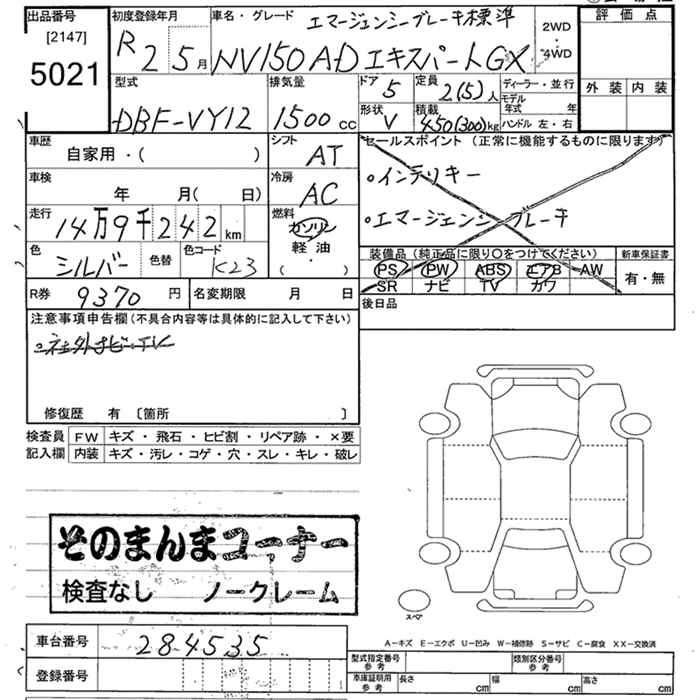 出品番号
[2147]
5021
初度登録年月
R2 5月
車名・グレード
エマージェンシーブレーキ標準
NV150 AD エキスパートGX
2WD
・
4WD
評価点
外装 内装
型式
DBF-VY12
排気量
1500cc
ドア
5
定員
2(5)人
形状
V
積載
450(300)kg
ディーラー・並行
モデル年式 年
ハンドル 左・右
車歴
自家用・( )
シフト
AT
セールスポイント (正常に機能するものに限ります)
・インテリキー
・エマージェンシーブレーキ
車検
年 月( 日)
冷房
AC
走行
14万9千242km
燃料
ガソリン
軽油
( ・ )
色
シルバー
色替
色コード
K23
装備品 (純正品に限り○をつけてください)
PS PW ABS エアB AW
SR ナビ TV カワ
新車保証書
有・無
R券
9370円
名変期限 月 日
後日品
注意事項申告欄 (不具合内容等は具体的に記入して下さい)
・社外ナビ・TV
修復歴 有 〔箇所 〕
検査員記入欄
FW キズ・飛石・ヒビ割・リペア跡・×要
内装 キズ・汚レ・コゲ・穴・スレ・キレ・破レ
そのまんまコーナー
検査なし ノークレーム
スペア
A-キズ E-エクボ U-凹み W-補修跡 S-サビ C-腐食 XX-交換済
車台番号
284535
登録番号
型式指定番号 参考
類別区分番号 参考
車庫証明用 参考
長さ cm
幅 cm
高さ cm